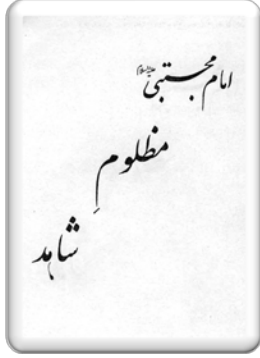 امام مجتبی علیه‌السلام
مظلومِ
شاهد